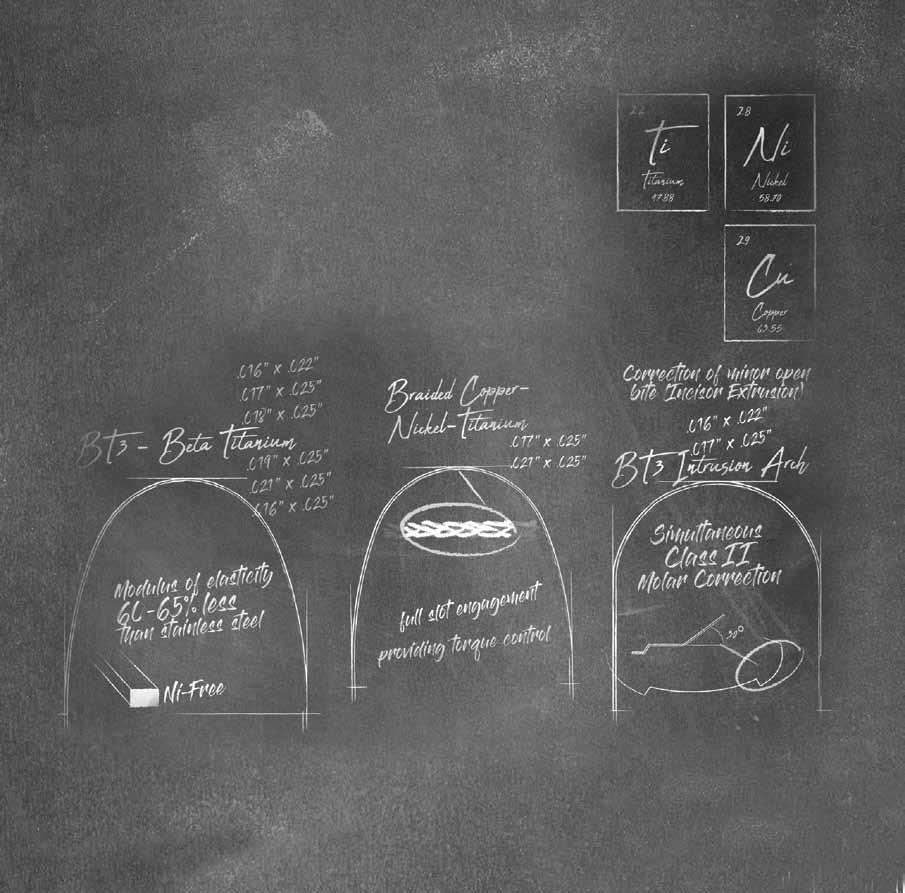 22
Ti
Titanium
47.88
28
Ni
Nickel
58.70
29
Cu
Copper
63.55
.016" x .022"
.017" x .025"
.018" x .025"
BT3 - Beta Titanium
.019" x .025"
.021" x .025"
.016" x .025"
Modulus of elasticity
60-65% less
than stainless steel
Ni-Free
Braided Copper-
Nickel-Titanium
.017" x .025"
.021" x .025"
full slot engagement
providing torque control
Correction of minor open
bite (Incisor Extrusion)
.016" x .022"
.017" x .025"
BT3 Intrusion Arch
Simultaneous
Class II
Molar Correction
30°